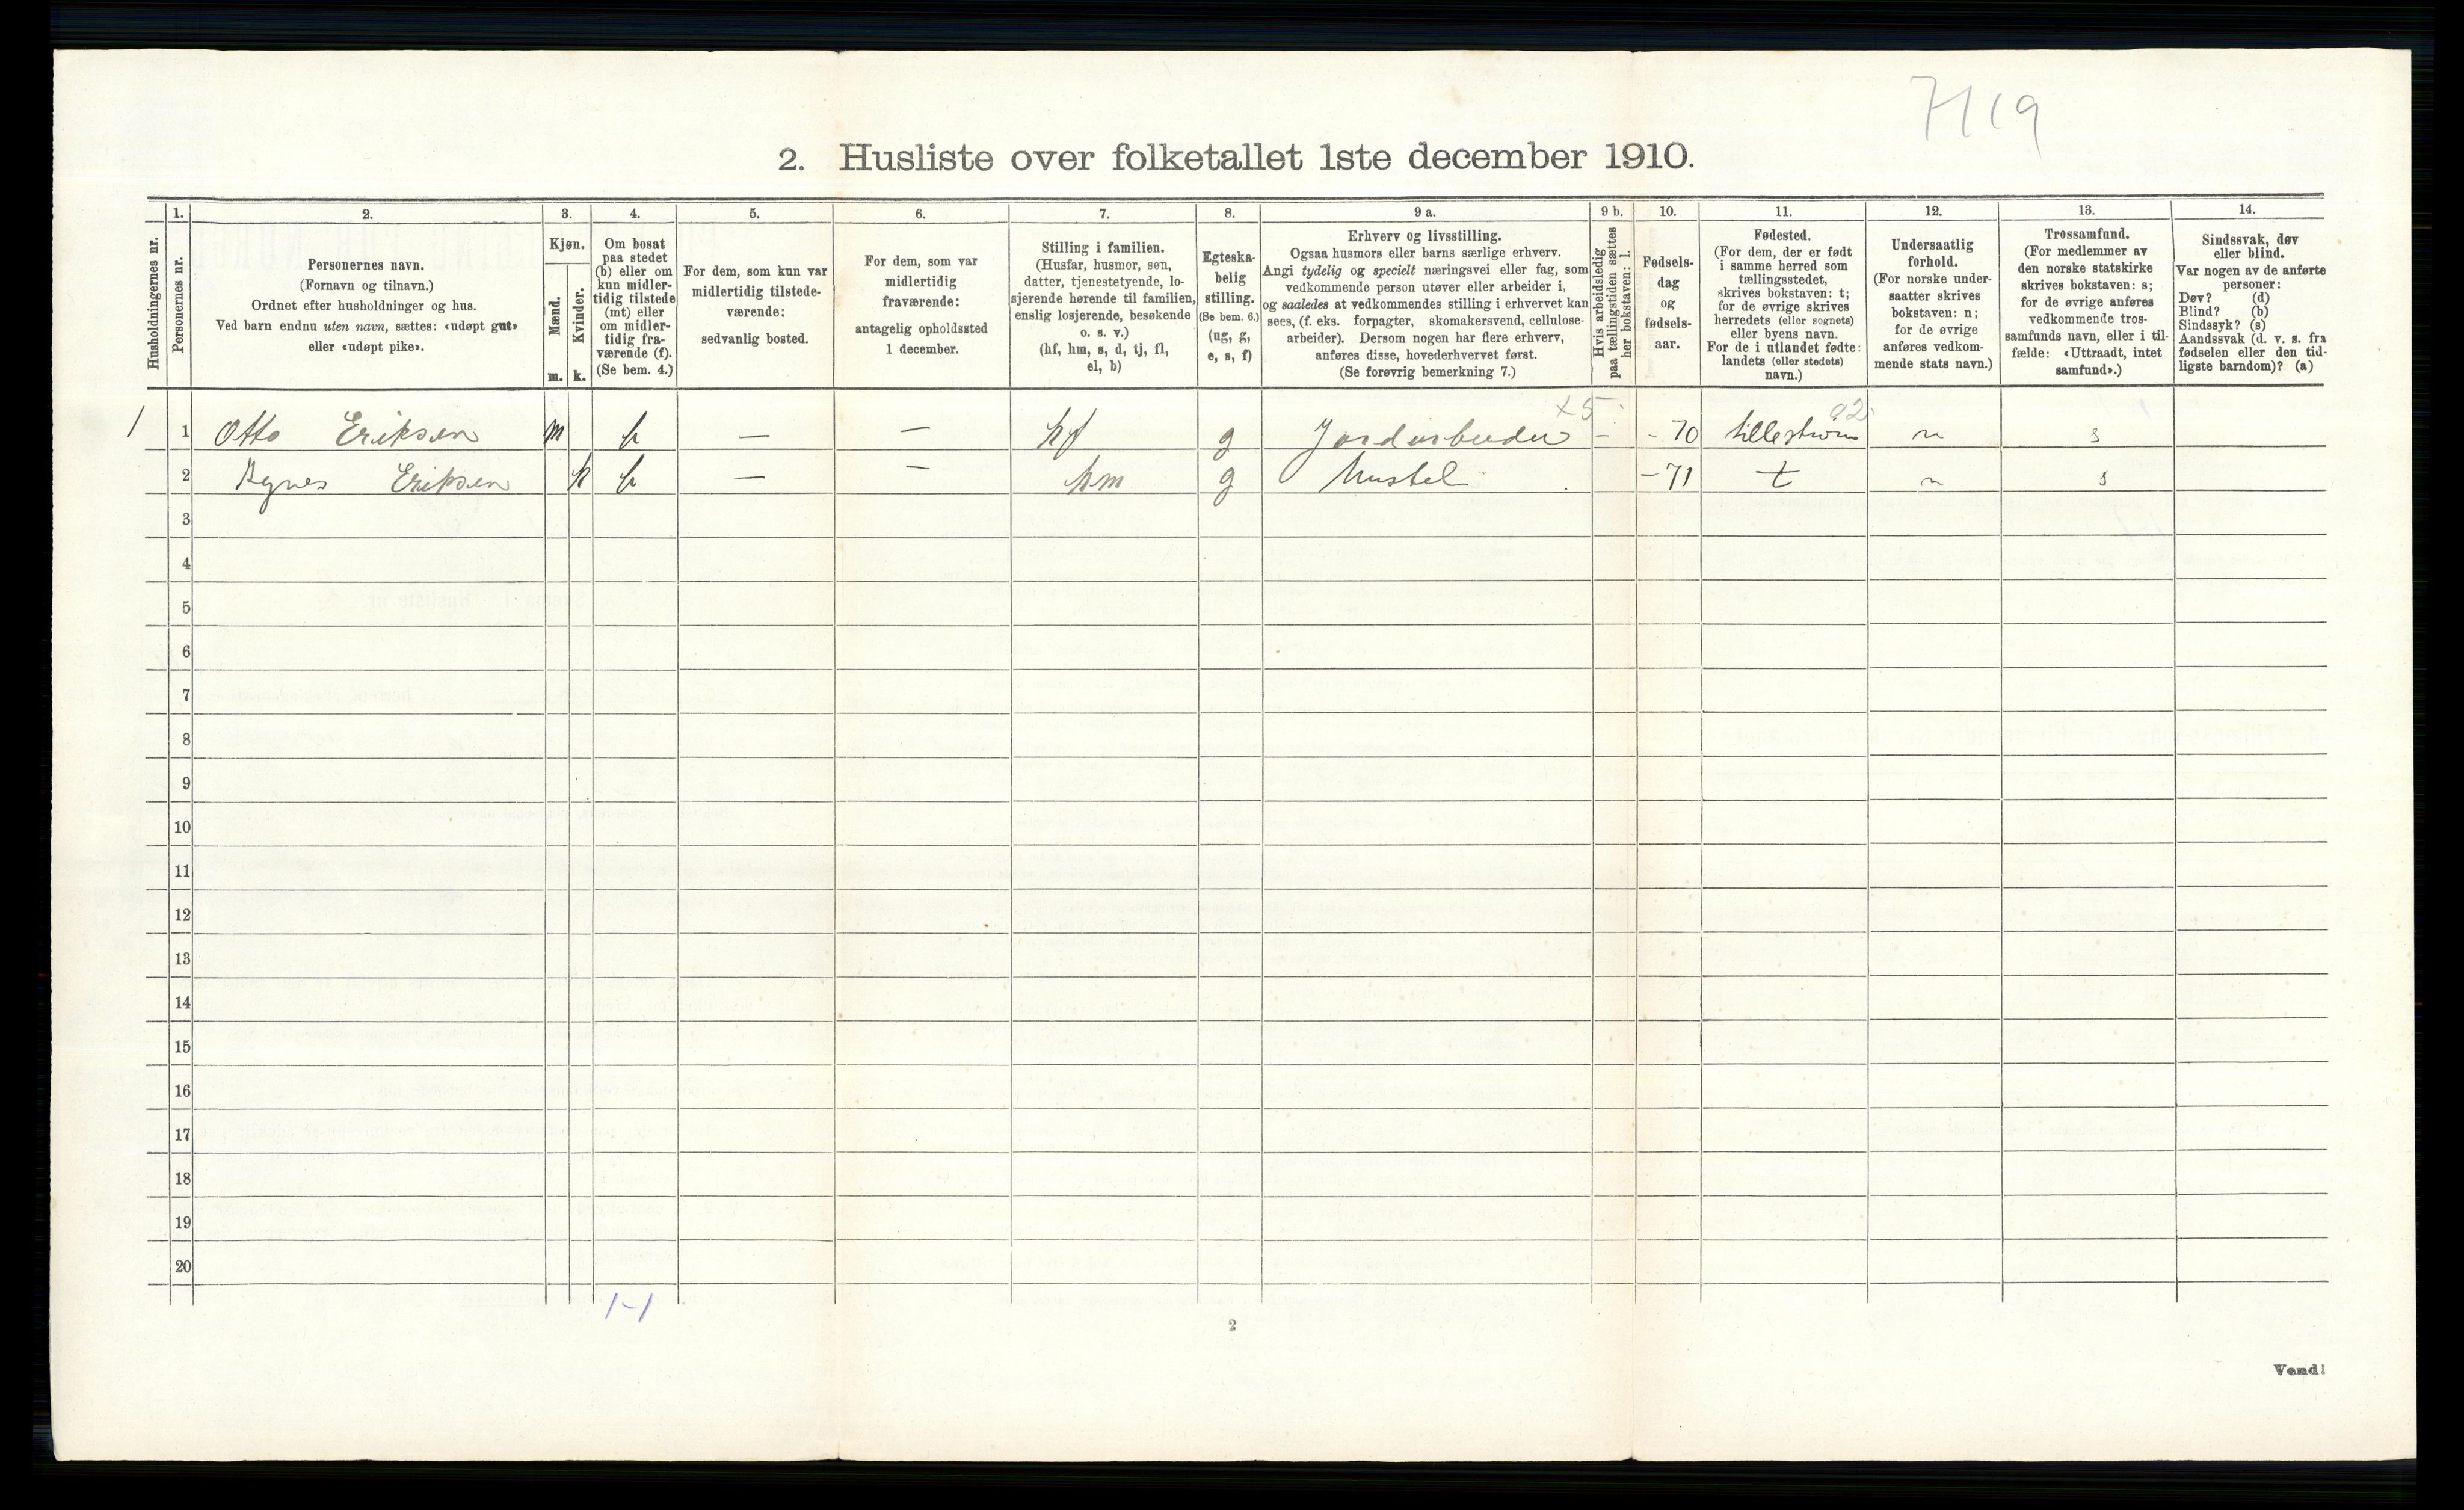 7119
2. Husliste over folketallet 1ste december 1910.
Husholdningernes nr.
1.
Personernes nr.
2.
Personernes navn.
(Fornavn og tilnavn.)
Ordnet efter husholdninger og hus.
Ved barn endnu uten navn, sættes: «udøpt gut»
eller «udøpt pike».
3.
Kjøn.
Mænd.
m.
Kvinder.
k.
4.
Om bosat
paa stedet
(b) eller om
kun midler-
tidig tilstede
(mt) eller
om midler-
tidig fra-
værende (f).
(Se bem. 4.)
5.
For dem, som kun var
midlertidig tilstede-
værende:
sedvanlig bosted.
6.
For dem, som var
midlertidig
fraværende:
antagelig opholdssted
1 december.
7.
Stilling i familien.
(Husfar, husmor, søn,
datter, tjenestetyende, lo-
sjerende hørende til familien,
enslig losjerende, besøkende
o. s. v.)
(hf, hm, s, d, tj, fl,
el, b)
8.
Egteska-
belig
stilling.
(Se bem. 6.)
(ug, g,
e, s, f)
9 a.
Erhverv og livsstilling.
Ogsaa husmors eller barns særlige erhverv.
Angi tydelig og specielt næringsvei eller fag, som
vedkommende person utøver eller arbeider i,
og saaledes at vedkommendes stilling i erhvervet kan
sees, (f. eks. forpagter, skomakersvend, cellulose-
arbeider). Dersom nogen har flere erhverv,
anføres disse, hovederhvervet først.
(Se forøvrig bemerkning 7.)
9 b.
Hvis arbeidsledig
paa tællingstiden sættes
her bokstaven: l.
10.
Fødsels-
dag
og
fødsels-
aar.
11.
Fødested.
(For dem, der er født
i samme herred som
tællingsstedet,
skrives bokstaven: t;
for de øvrige skrives
herredets (eller sognets)
eller byens navn.
For de i utlandet fødte:
landets (eller stedets)
navn.)
12.
Undersaatlig
forhold.
(For norske under-
saatter skrives
bokstaven: n;
for de øvrige
anføres vedkom-
mende stats navn.)
13.
Trossamfund.
(For medlemmer av
den norske statskirke
skrives bokstaven: s;
for de øvrige anføres
vedkommende tros-
samfunds navn, eller i til-
fælde: «Uttraadt, intet
samfund».)
14.
Sindssvak, døv
eller blind.
Var nogen av de anførte
personer:
Døv? (d)
Blind? (b)
Sindssyk? (s)
Aandssvak (d. v. s. fra
fødselen eller den tid-
ligste barndom)? (a)
x5 02
1 1 Otto Eriksen m b — — hf g Jordarbeider - - 70 Lillestrøm n s
2 Agnes Eriksen k b — — hm g Hustel - 71 t n s
3
4
5
6
7
8
9
10
11
12
13
14
15
16
17
18
19
20
1-1
2
Vend!